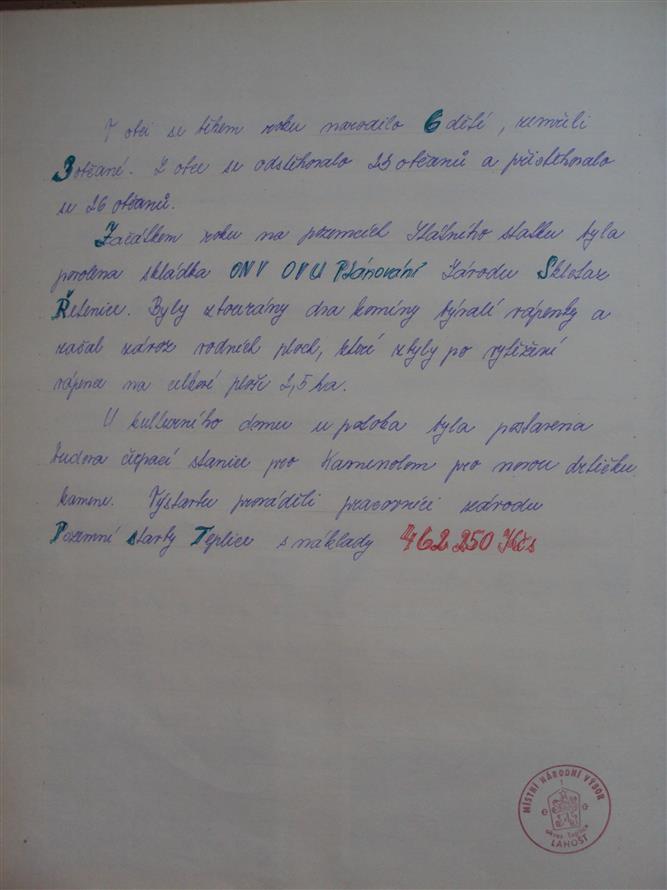 V obci se během roku narodilo 6 dětí, zemřeli
3 občané. Z obce se odstěhovalo 25 občanů a přistěhovalo
se 26 občanů.
Začátkem roku na pozemcích Státního statku byla
povolena skládka ONV OVÚ Plánování Závodu Sklotas
Řetenice. Byly zbourány dva komíny bývalé vápenky a
začal závoz vodních ploch, které zbyly po vytěžení
vápence na celkové ploše 2,5 ha.
U kulturního domu u potoka byla postavena
budova čerpací stanice pro Kamenolom pro novou drtičku
kamene. Výstavbu prováděli pracovníci závodu
Pozemní stavby Teplice s náklady 462 250 Kčs
MÍSTNÍ NÁRODNÍ VÝBOR
okres Teplice
LAHOŠŤ